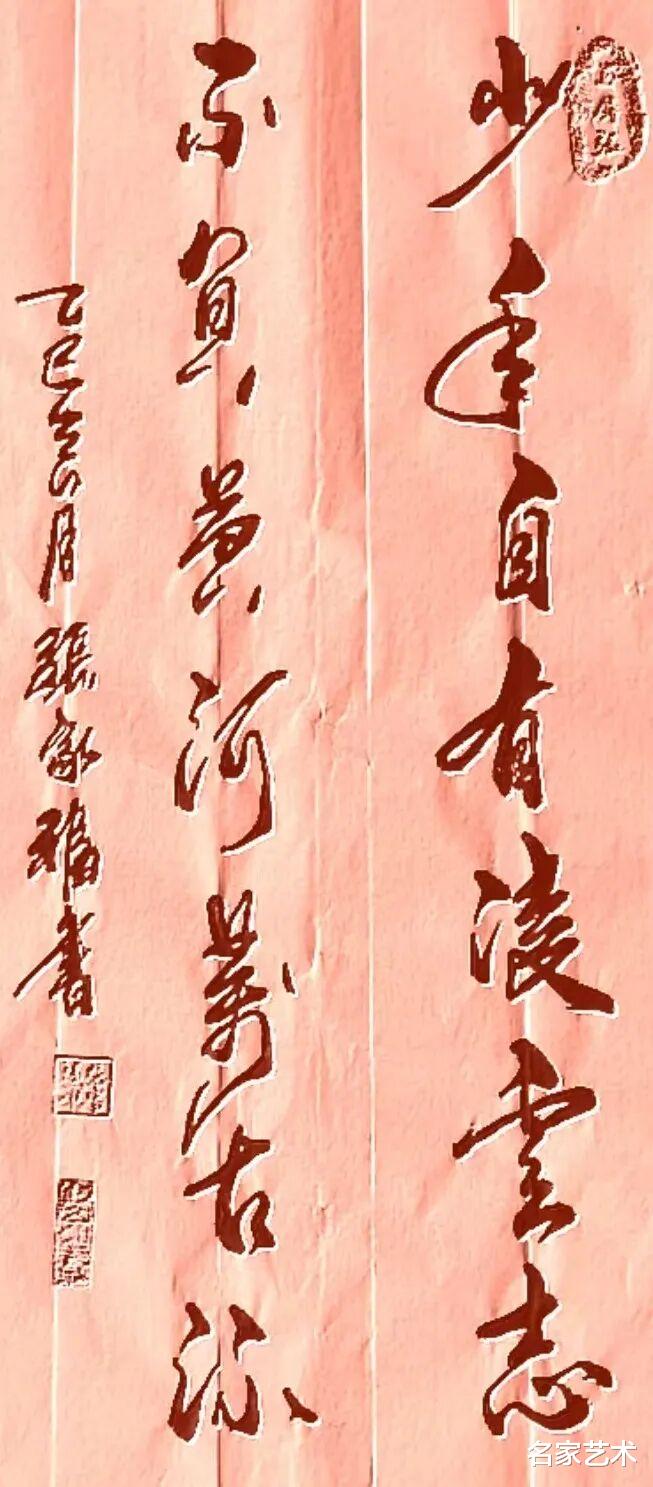 少年自有凌雲志
不負黄河萬古流
乙巳六月張家福書
名家艺术